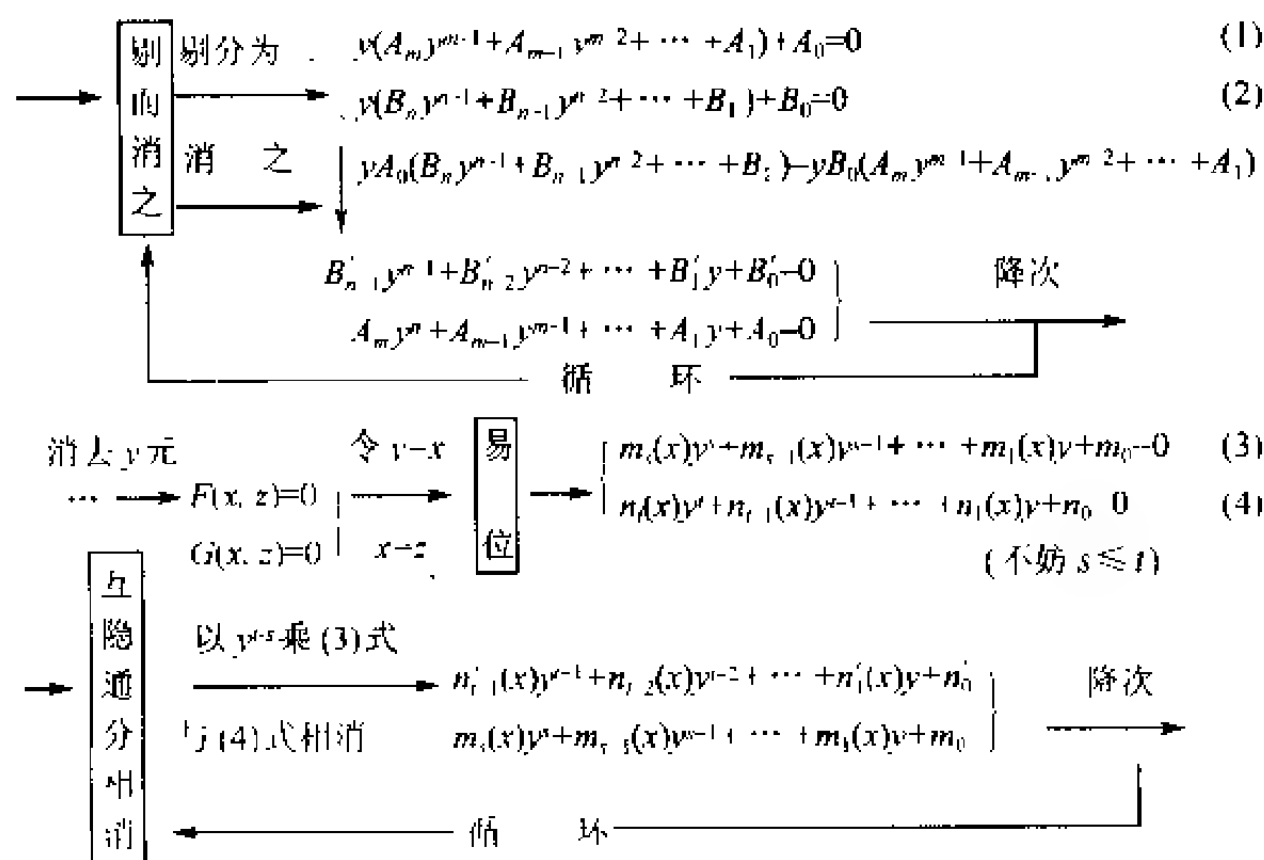 剔而消之
剔分为 y(A_m y^{m-1}+A_{m-1} y^{m-2}+ ⋯ +A_1)+A_0=0 (1)
y(B_n y^{n-1}+B_{n-1} y^{n-2}+ ⋯ +B_1)+B_0=0 (2)
消 之 yA_0(B_n y^{n-1}+B_{n-1} y^{n-2}+ ⋯ +B_1)-yB_0(A_m y^{m-1}+A_{m-1} y^{m-2}+ ⋯ +A_1)
B'_{n-1} y^{n-1}+B'_{n-2} y^{n-2}+ ⋯ +B'_1 y+B'_0=0 降次
A_m y^m+A_{m-1} y^{m-1}+ ⋯ +A_1 y+A_0=0
循 环
消去 y 元 令 y=x 易位 m_s(x)y^s+m_{s-1}(x)y^{s-1}+ ⋯ +m_1(x)y+m_0=0 (3)
⋯ F(x, z)=0 n_t(x)y^t+n_{t-1}(x)y^{t-1}+ ⋯ +n_1(x)y+n_0=0 (4)
G(x, z)=0 x=z (不妨 s≤t)
互隐通分相消
以 y^{t-s} 乘 (3) 式 n'_{t-1}(x)y^{t-1}+n'_{t-2}(x)y^{t-2}+ ⋯ +n'_1(x)y+n'_0 降次
与 (4) 式相消 m_s(x)y^s+m_{s-1}(x)y^{s-1}+ ⋯ +m_1(x)y+m_0
循 环